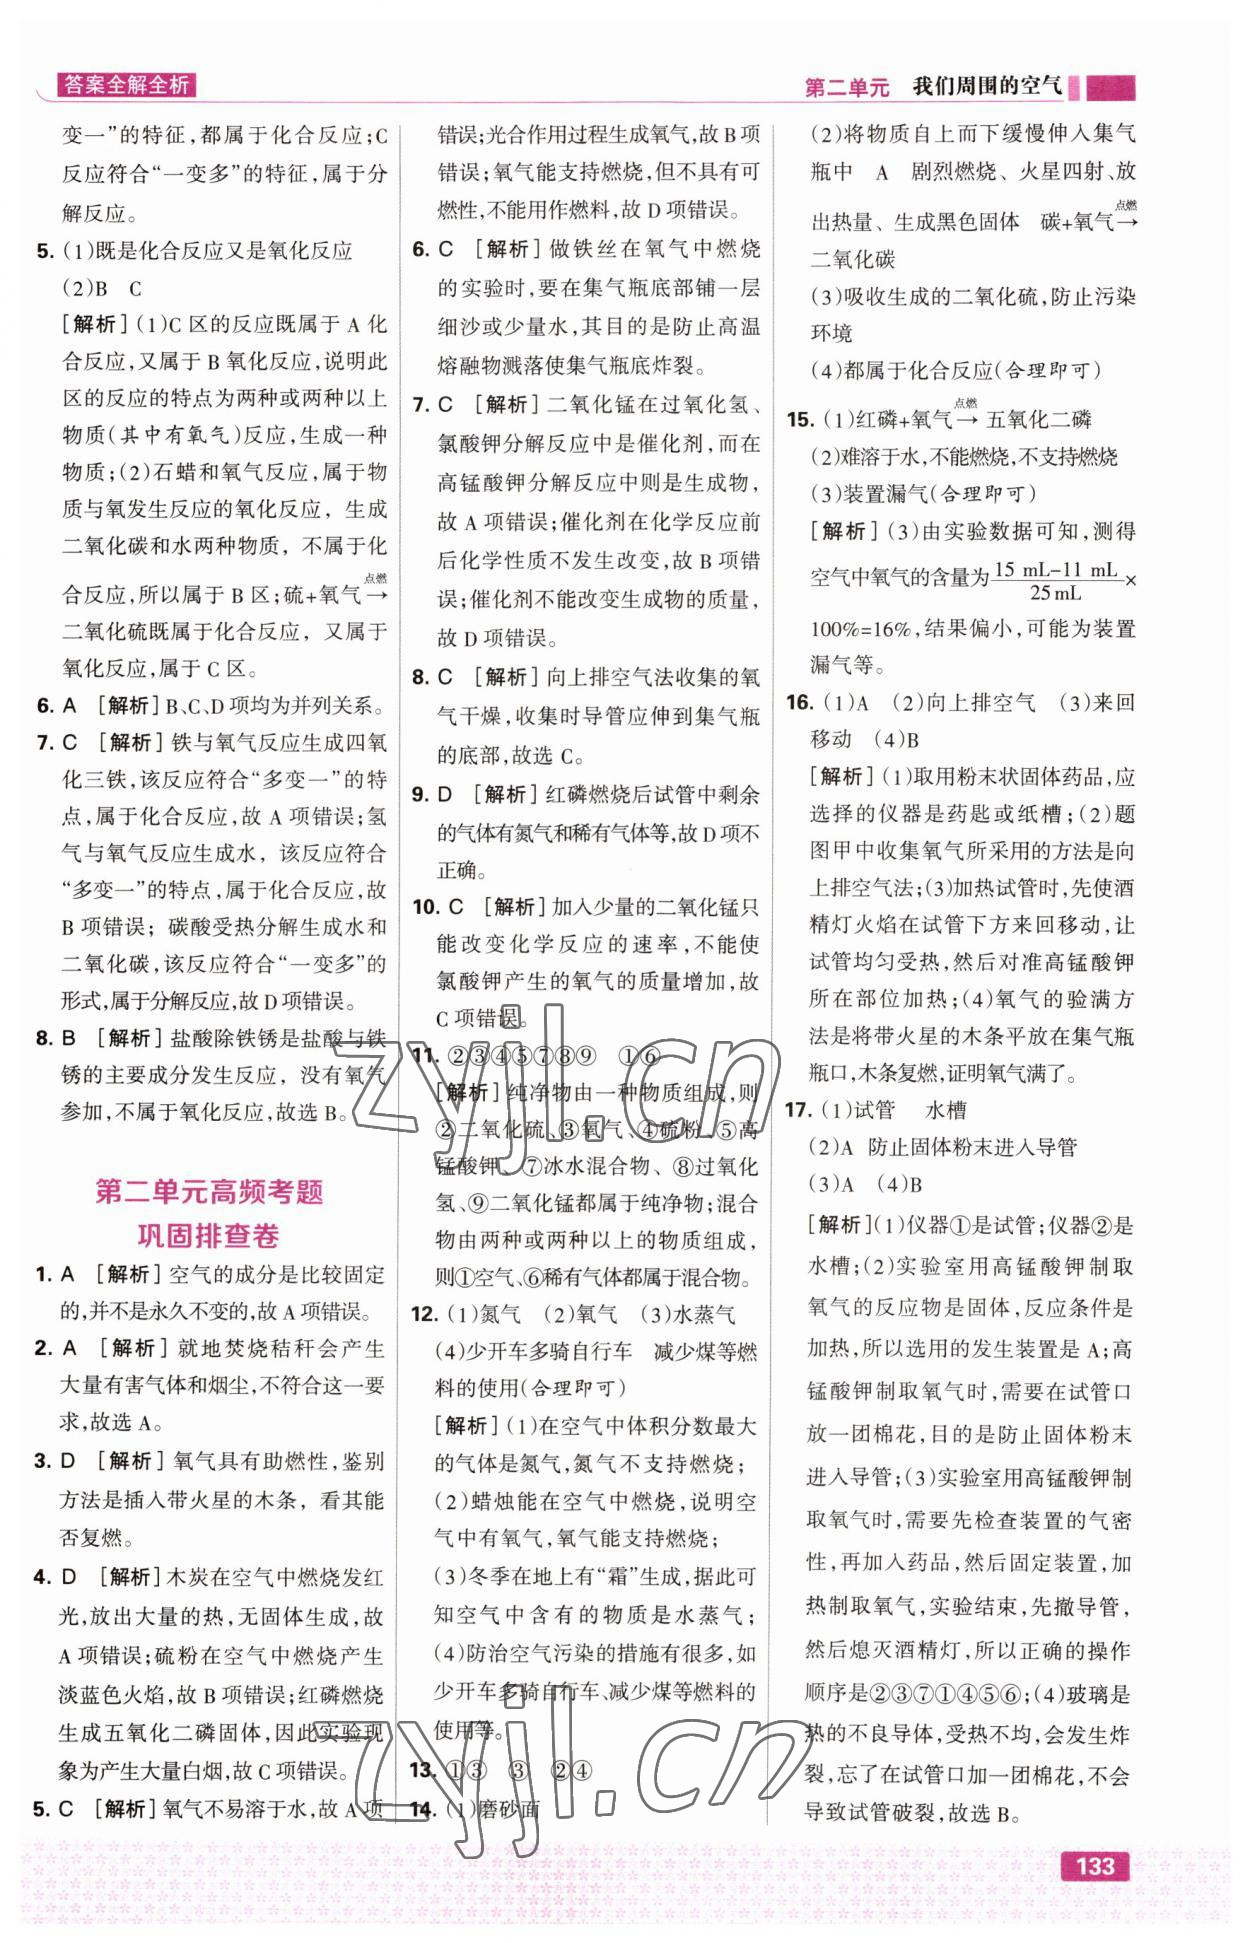 答案全解全析
第二单元 我们周围的空气
变一”的特征,都属于化合反应;C
反应符合“一变多”的特征,属于分
解反应。
5. (1)既是化合反应又是氧化反应
(2)B C
[解析](1)C区的反应既属于A化
合反应,又属于B氧化反应,说明此
区的反应的特点为两种或两种以上
物质(其中有氧气)反应,生成一种
物质;(2)石蜡和氧气反应,属于物
质与氧发生反应的氧化反应,生成
二氧化碳和水两种物质,不属于化
合反应,所以属于B区;硫+氧气 点燃→
二氧化硫既属于化合反应,又属于
氧化反应,属于C区。
6. A [解析]B、C、D项均为并列关系。
7. C [解析]铁与氧气反应生成四氧
化三铁,该反应符合“多变一”的特
点,属于化合反应,故A项错误;氢
气与氧气反应生成水,该反应符合
“多变一”的特点,属于化合反应,故
B项错误;碳酸受热分解生成水和
二氧化碳,该反应符合“一变多”的
形式,属于分解反应,故D项错误。
8. B [解析]盐酸除铁锈是盐酸与铁
锈的主要成分发生反应,没有氧气
参加,不属于氧化反应,故选B。
第二单元高频考题
巩固排查卷
1. A [解析]空气的成分是比较固定
的,并不是永久不变的,故A项错误。
2. A [解析]就地焚烧秸秆会产生
大量有害气体和烟尘,不符合这一要
求,故选A。
3. D [解析]氧气具有助燃性,鉴别
方法是插入带火星的木条,看其能
否复燃。
4. D [解析]木炭在空气中燃烧发红
光,放出大量的热,无固体生成,故
A项错误;硫粉在空气中燃烧产生
淡蓝色火焰,故B项错误;红磷燃烧
生成五氧化二磷固体,因此实验现
象为产生大量白烟,故C项错误。
5. C [解析]氧气不易溶于水,故A项
错误;光合作用过程生成氧气,故B项
错误;氧气能支持燃烧,但是不具有可
燃性,不能用作燃料,故D项错误。
6. C [解析]做铁丝在氧气中燃烧
的实验时,要在集气瓶底部铺一层
细沙或少量水,其目的是防止高温
熔融物溅落使集气瓶底炸裂。
7. C [解析]二氧化锰在过氧化氢、
氯酸钾分解反应中是催化剂,而在
高锰酸钾分解反应中则是生成物,
故A项错误;催化剂在化学反应前
后化学性质不发生改变,故B项错
误;催化剂不能改变生成物的质量,
故D项错误。
8. C [解析]向上排空气法收集的氧
气干燥,收集时导管应伸到集气瓶
的底部,故选C。
9. D [解析]红磷燃烧后试管中剩余
的气体有氮气和稀有气体等,故D项不
正确。
10. C [解析]加入少量的二氧化锰只
能改变化学反应的速率,不能使
氯酸钾产生的氧气的质量增加,故
C项错误。
11. ②③④⑤⑦⑧⑨ ①⑥
[解析]纯净物由一种物质组成,则
②二氧化硫、③氧气、④硫粉、⑤高
锰酸钾、⑦冰水混合物、⑧过氧化
氢、⑨二氧化锰都属于纯净物;混合
物由两种或两种以上的物质组成,
则①空气、⑥稀有气体都属于混合物。
12. (1)氮气 (2)氧气 (3)水蒸气
(4)少开车多骑自行车 减少煤等燃
料的使用(合理即可)
[解析](1)在空气中体积分数最大
的气体是氮气,氮气不支持燃烧;
(2)蜡烛能在空气中燃烧,说明空
气中有氧气,氧气能支持燃烧;
(3)冬季在地上有“霜”生成,据此可
知空气中含有的物质是水蒸气;
(4)防治空气污染的措施有很多,如
少开车多骑自行车、减少煤等燃料的
使用等。
13. ①③ ③ ②④
14. (1)磨砂面
(2)将物质自上而下缓慢伸入集气
瓶中 A 剧烈燃烧、火星四射、放
出热量、生成黑色固体 碳+氧气 点燃→
二氧化碳
(3)吸收生成的二氧化硫,防止污染
环境
(4)都属于化合反应(合理即可)
15. (1)红磷+氧气 点燃→ 五氧化二磷
(2)难溶于水,不能燃烧,不支持燃烧
(3)装置漏气(合理即可)
[解析](3)由实验数据可知,测得
空气中氧气的含量为 15 mL-11 mL / 25 mL ×
100%=16%,结果偏小,可能为装置
漏气等。
16. (1)A (2)向上排空气 (3)来回
移动 (4)B
[解析](1)取用粉末状固体药品,应
选择的仪器是药匙或纸槽;(2)题
图甲中收集氧气所采用的方法是向
上排空气法;(3)加热试管时,先使酒
精灯火焰在试管下方来回移动,让
试管均匀受热,然后对准高锰酸钾
所在部位加热;(4)氧气的验满方
法是将带火星的木条平放在集气瓶
瓶口,木条复燃,证明氧气满了。
17. (1)试管 水槽
(2)A 防止固体粉末进入导管
(3)A (4)B
[解析](1)仪器①是试管;仪器②是
水槽;(2)实验室用高锰酸钾制取
氧气的反应物是固体,反应条件是
加热,所以选用的发生装置是A;高
锰酸钾制取氧气时,需要在试管口
放一团棉花,目的是防止固体粉末
进入导管;(3)实验室用高锰酸钾制
取氧气时,需要先检查装置的气密
性,再加入药品,然后固定装置,加
热制取氧气,实验结束,先撤导管,
然后熄灭酒精灯,所以正确的操作
顺序是②③⑦①④⑤⑥;(4)玻璃是
热的不良导体,受热不均,会发生炸
裂,忘了在试管口加一团棉花,不会
导致试管破裂,故选B。
zyjl.cn
zyjl.cn
133